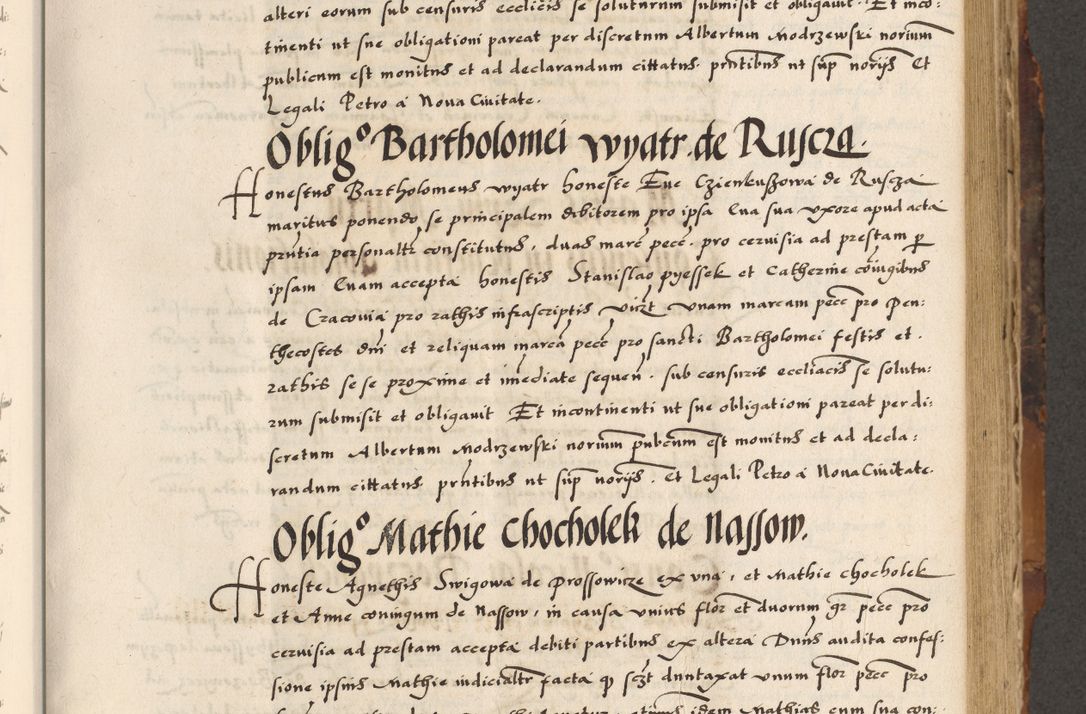 alteri eorum sub censuris eccl̃icis se soluturum submisit et obligauit. Et inco:
tinenti ut sue obligationi pareat per discretum Albertum Modrzewski norium
publicum est monitus et ad declarandum cittatus. pñtibus ut sup̃ norijs Et
Legali Petro a Noua Ciuitate.
Oblig° Bartholomei Wyatr. de Ruscza.
Honestus Bartholomeus Wyatr honeste Eue Czienkussowa de Ruscza
maritus ponendo se principalem debitorem pro ipsa Eua sua vxore apud acta
pñtia personaltr constitutus, duas marc pecc. pro ceruisia ad prestam p
ipsam Euam accepta honestis Stanislao Pyessek et Catherine coniugibus
de Cracouia pro rathis infrascriptis vizt vnam marcam pecc pro Pen:
thecostes dni et reliquam marca pecc pro sancti Bartholomei festis et
rathis se se proxime et imediate sequen. sub censuris eccliacis se solutu:
rum submisit et obligauit Et incontinenti ut sue obligationi pareat per di:
scretum Albertum Modrzewski norium pubcum est monitus et ad decla:
randum cittatus pñtibus ut sup̃ norijs. Et Legali Petro a Noua Ciuitate.
Oblig° Mathie Chocholek de Nassow.
Honeste Agnethis Swigowa de Prossowicze ex vna, et Mathie Chocholek
et Anne coniugum de Nassow, in causa vnius flor et duorum gr pecc pro
ceruisia ad prestam accepta debiti partibus ex altera Duns audita confes:
sione ipsius Mathie iudicialtr facta q sczt duntaxat vnum flor pecc pro
idem Mathias eum sua con: